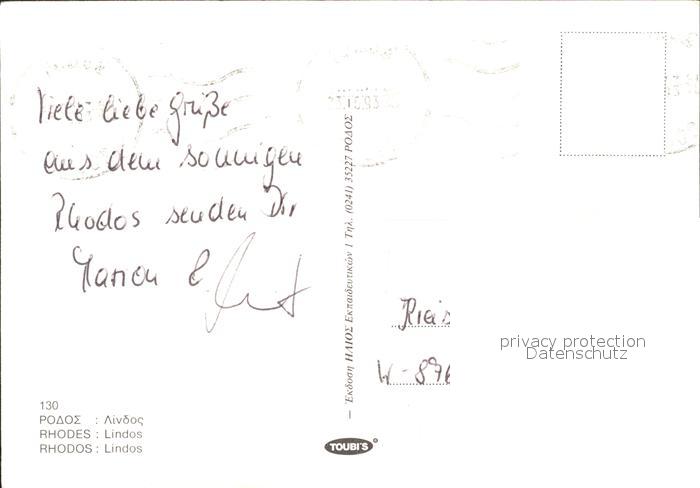 Viele liebe Grüße
aus dem sonnigen
Rhodos senden Dir
Marion &
W-896
privacy protection
Datenschutz
130
ΡΟΔΟΣ : Λίνδος
RHODES : Lindos
RHODOS : Lindos
Έκδοση ΗΛΙΟΣ Εκπαιδευτικών 1 Τηλ. (0241) 35227 ΡΟΔΟΣ
TOUBI'S